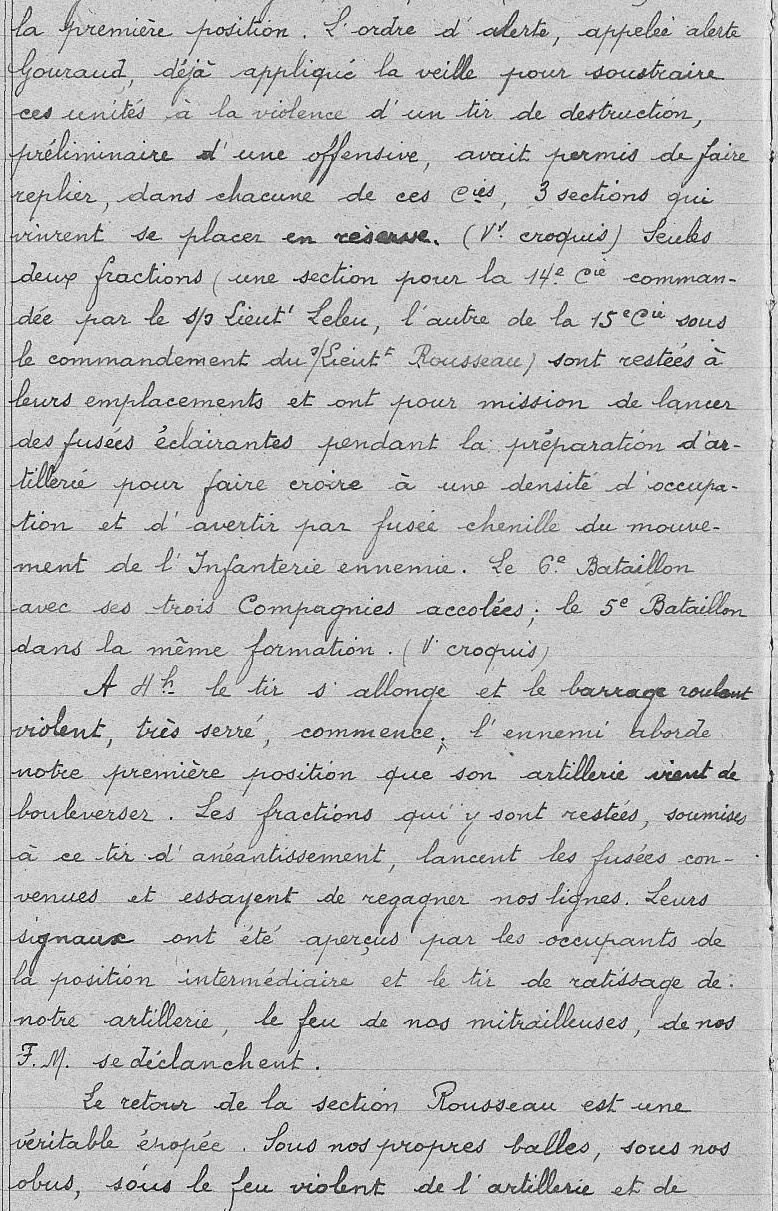 la première position. L'ordre d'alerte, appelée alerte
Gouraud, déjà appliqué la veille pour soustraire
ces unités à la violence d'un tir de destruction,
préliminaire d'une offensive, avait permis de faire
replier, dans chacune de ces Cies, 3 sections qui
vinrent se placer en réserve. (Vr croquis) Seules
deux fractions (une section pour la 14e Cie comman-
dée par le s/s Lieutt Leleu, l'autre de la 15e Cie sous
le commandement du s/Lieutt Rousseau) sont restées à
leurs emplacements et ont pour mission de lancer
des fusées éclairantes pendant la préparation d'ar-
tillerie pour faire croire à une densité d'occupa-
tion et d'avertir par fusée chenille du mouve-
ment de l'Infanterie ennemie. Le 6e Bataillon
avec ses trois Compagnies accolées; le 5e Bataillon
dans la même formation. (V croquis)
A 4h le tir s'allonge et le barrage roulant
violent, très serré, commence; l'ennemi aborde
notre première position que son artillerie vient de
bouleverser. Les fractions qui y sont restées, soumises
à ce tir d'anéantissement, lancent les fusées con-
venues et essayent de regagner nos lignes. Leurs
signaux ont été aperçus par les occupants de
la position intermédiaire et le tir de ratissage de
notre artillerie, le feu de nos mitrailleuses, de nos
F.M. se déclanchent.
Le retour de la section Rousseau est une
véritable énopée. Sous nos propres balles, sous nos
obus, sous le feu violent de l'artillerie et de